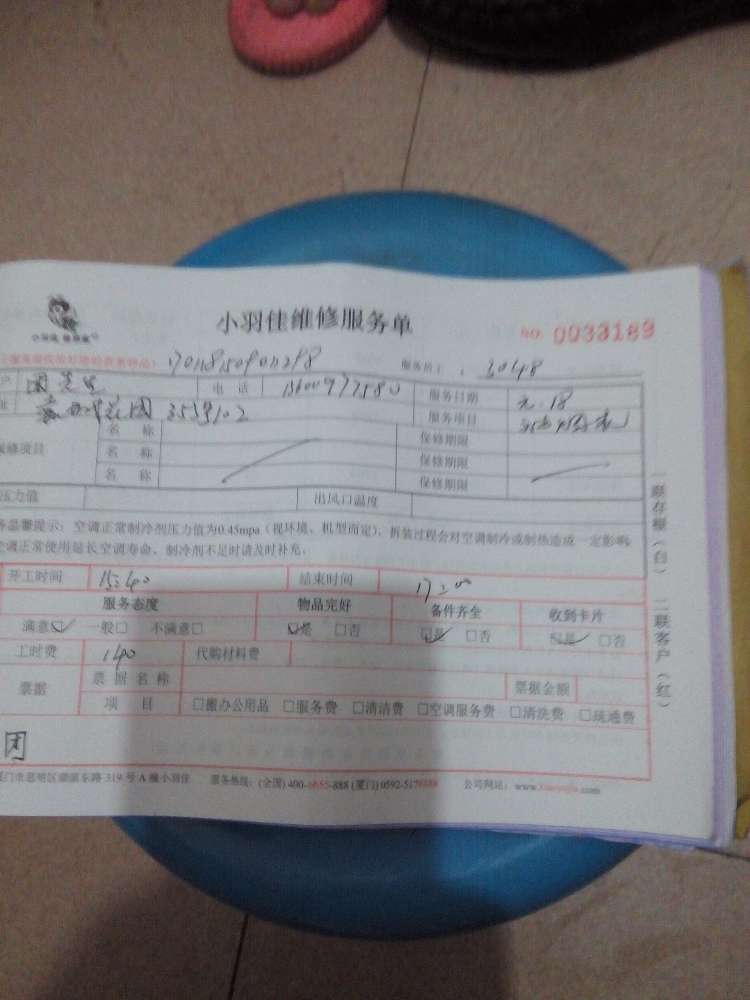 小羽佳维修服务单
NO. 0033189
服务员工: 3048
电 话 服务日期 元.18
服务项目
3559102
名 称 保修期限
保修项目 名 称 保修期限
名 称 保修期限
压力值 出风口温度
务温馨提示：空调正常制冷剂压力值为0.45mpa（视环境、机型而定），拆装过程会对空调制冷或制热造成一定影响
空调正常使用延长空调寿命、制冷剂不足时请及时补充；
开工时间 15:40 结束时间 17:00
服务态度 物品完好 备件齐全 收到卡片
满意☑ 一般□ 不满意□ ☑是 □否 ☑是 □否 ☑是 □否
工时费 140 代购材料费
票据 票据名称 票据金额
项 目 □搬办公用品 □服务费 □清洁费 □空调服务费 □清洗费 □疏通费
团
厦门市思明区湖滨东路 319 号 A 幢小羽佳 服务热线：(全国) 400-6655-888 (厦门) 0592-517 公司网站：www. .com
一联存根（白） 二联客户（红）